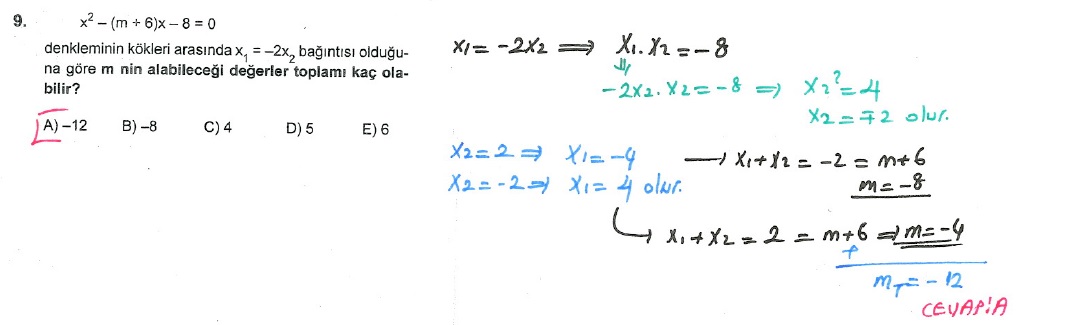 9. x² – (m + 6)x – 8 = 0
denkleminin kökleri arasında x₁ = –2x₂ bağıntısı olduğu-
na göre m nin alabileceği değerler toplamı kaç ola-
bilir?
A) –12 B) –8 C) 4 D) 5 E) 6
x₁ = -2x₂ ⟹ x₁.x₂ = -8
⇓
-2x₂.x₂ = -8 ⇒ x₂² = 4
x₂ = ∓2 olur.
x₂ = 2 ⇒ x₁ = -4 → x₁+x₂ = -2 = m+6
x₂ = -2 ⇒ x₁ = 4 olur. m = -8
↳ x₁+x₂ = 2 = m+6 ⇒ m = -4
+
m_T = -12
CEVAP:A